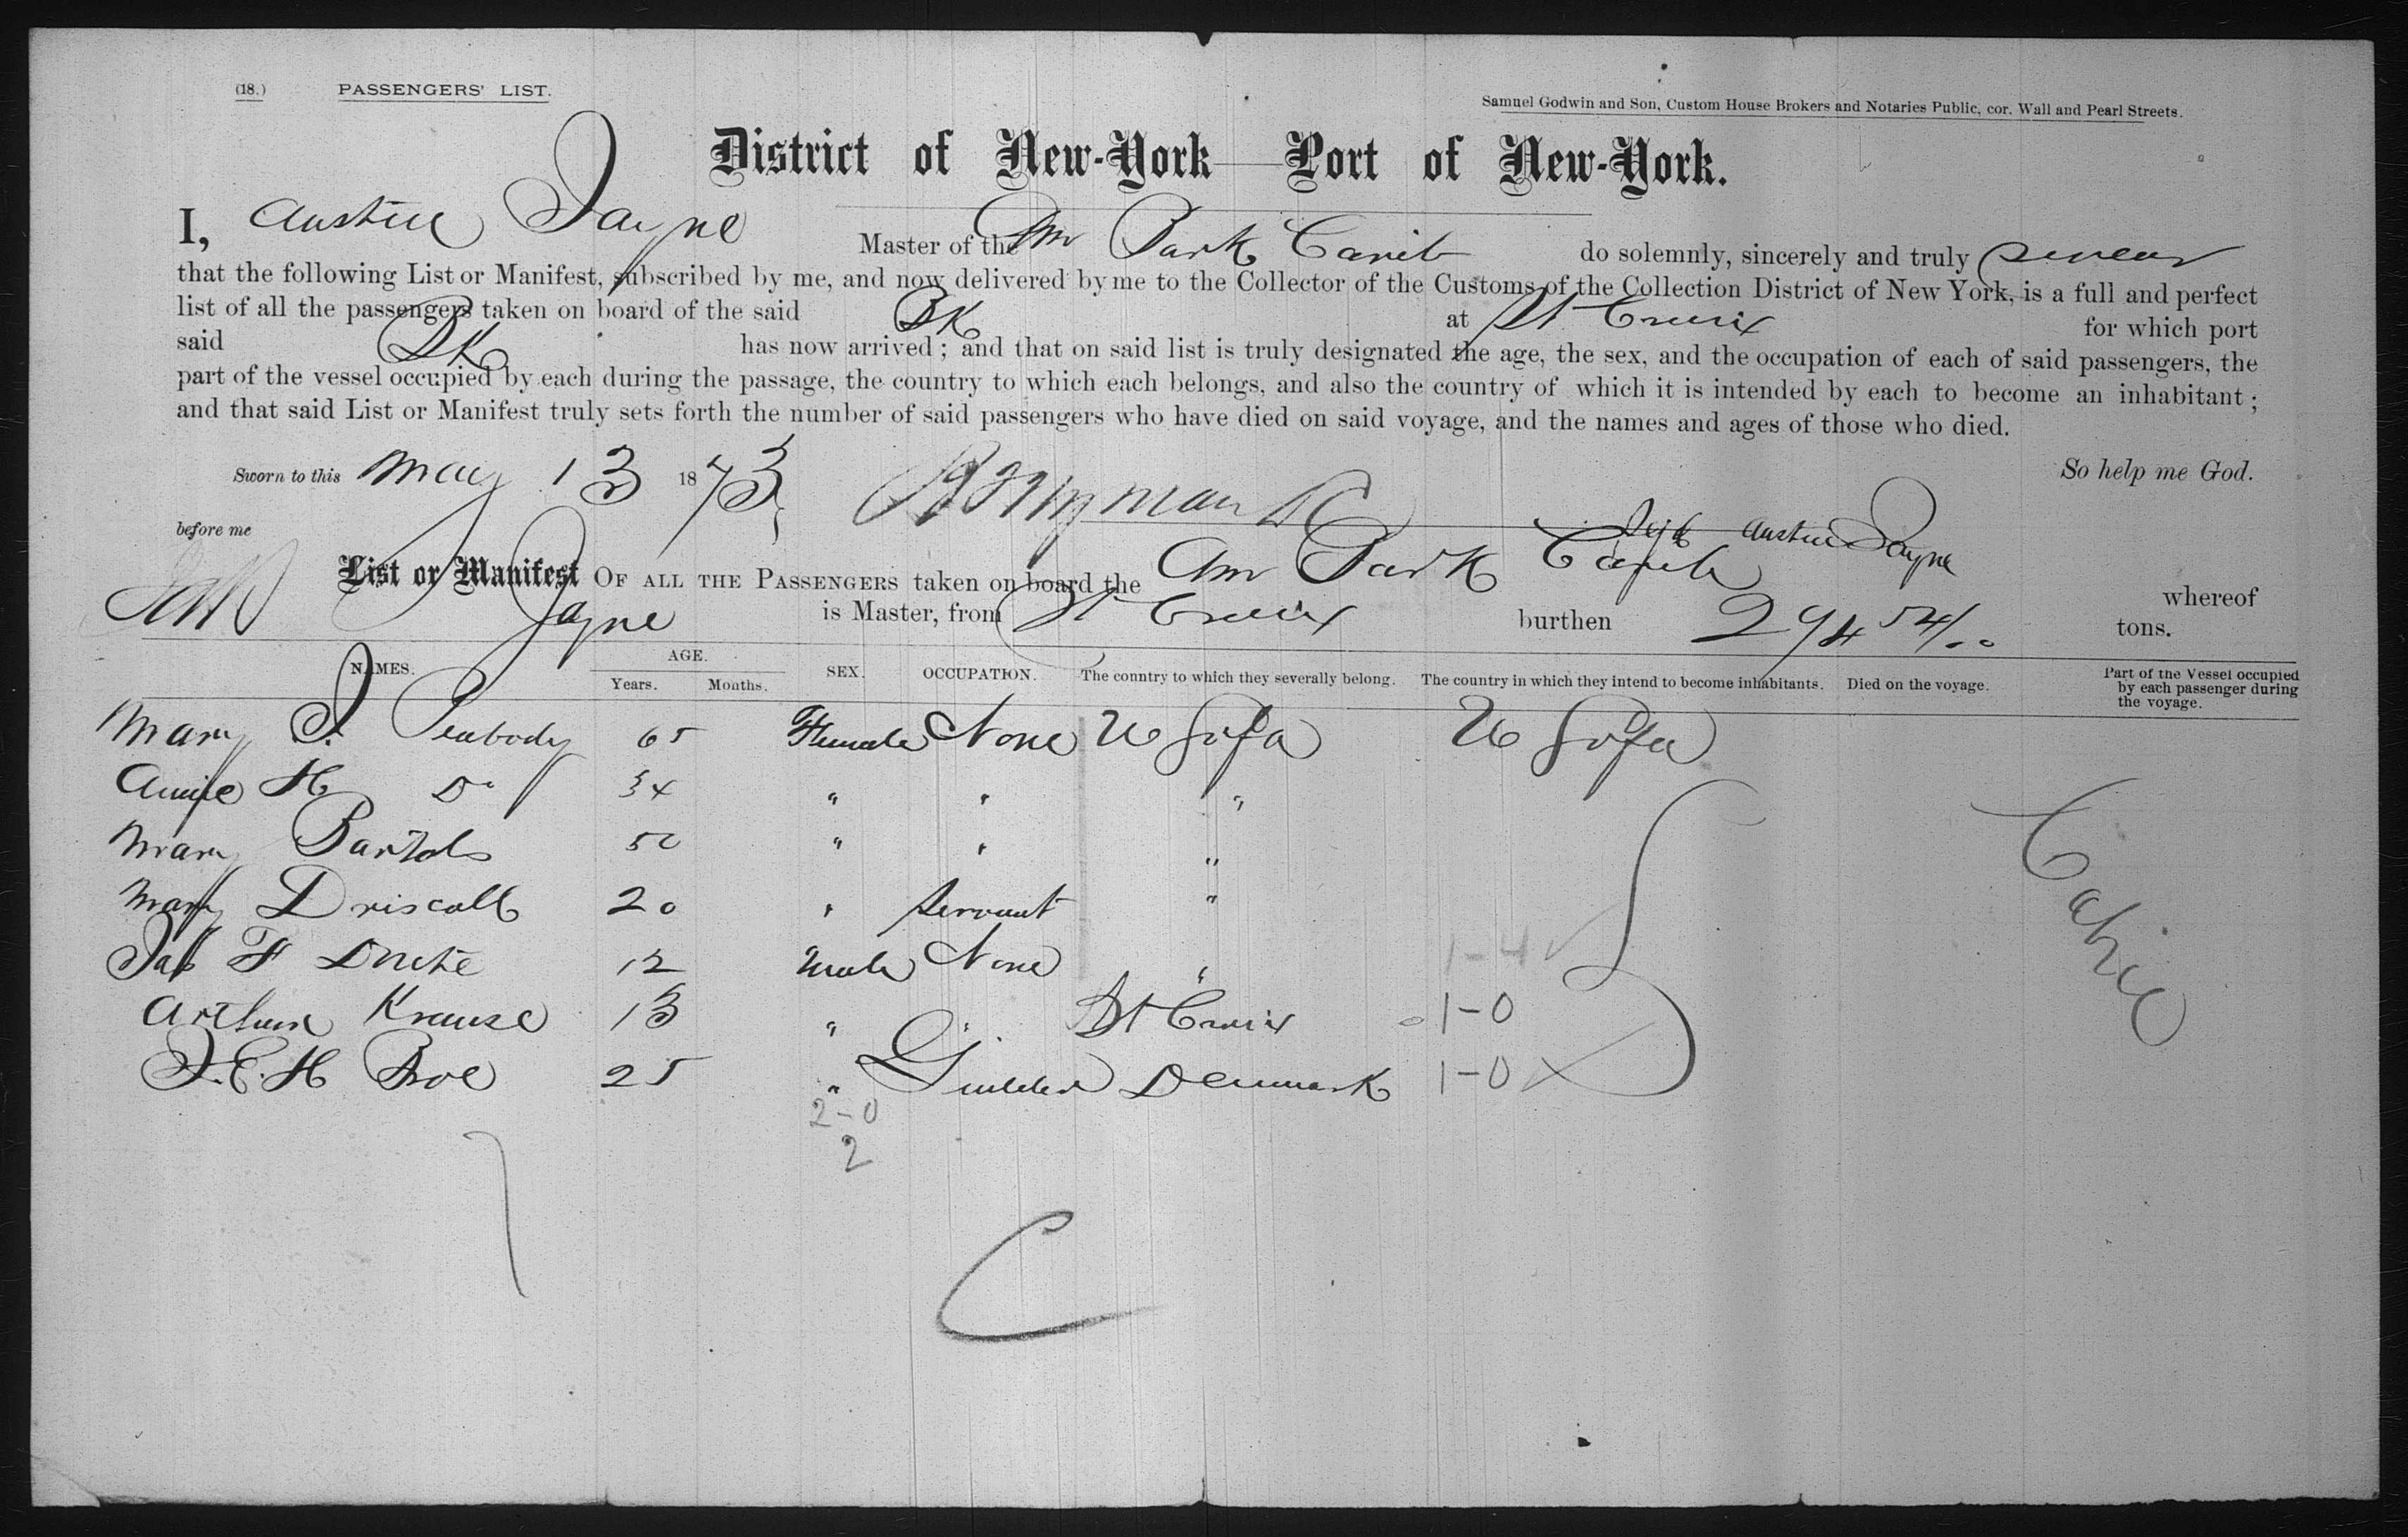 (18.) PASSENGERS' LIST.
Samuel Godwin and Son, Custom House Brokers and Notaries Public, cor. Wall and Pearl Streets.
District of New-York — Port of New-York.
I, Austin Jayne Master of the Am Bark Carib do solemnly, sincerely and truly swear
that the following List or Manifest, subscribed by me, and now delivered by me to the Collector of the Customs of the Collection District of New York, is a full and perfect
list of all the passengers taken on board of the said BK at St Croix for which port
said BK has now arrived; and that on said list is truly designated the age, the sex, and the occupation of each of said passengers, the
part of the vessel occupied by each during the passage, the country to which each belongs, and also the country of which it is intended by each to become an inhabitant;
and that said List or Manifest truly sets forth the number of said passengers who have died on said voyage, and the names and ages of those who died.
Sworn to this May 13 1873 So help me God.
before me Austin Jayne
List or Manifest OF ALL THE PASSENGERS taken on board the Am Bark Carib whereof
Jayne is Master, from St Croix burthen 294 54/100 tons.
NAMES. AGE. Years. Months. SEX. OCCUPATION. The country to which they severally belong. The country in which they intend to become inhabitants. Died on the voyage. Part of the Vessel occupied by each passenger during the voyage.
Mary J. Peabody 65 Female None U S of a U S of a
Annie H Do 34 " " "
Mary 50 " " "
Mary Driscoll 20 " Servant "
Jas F 12 Male None " 1-4
Arthur Krause 13 " St Croix 1-0
J. E. H 25 " Denmark 1-0
2-0
2
7
C
Cabin